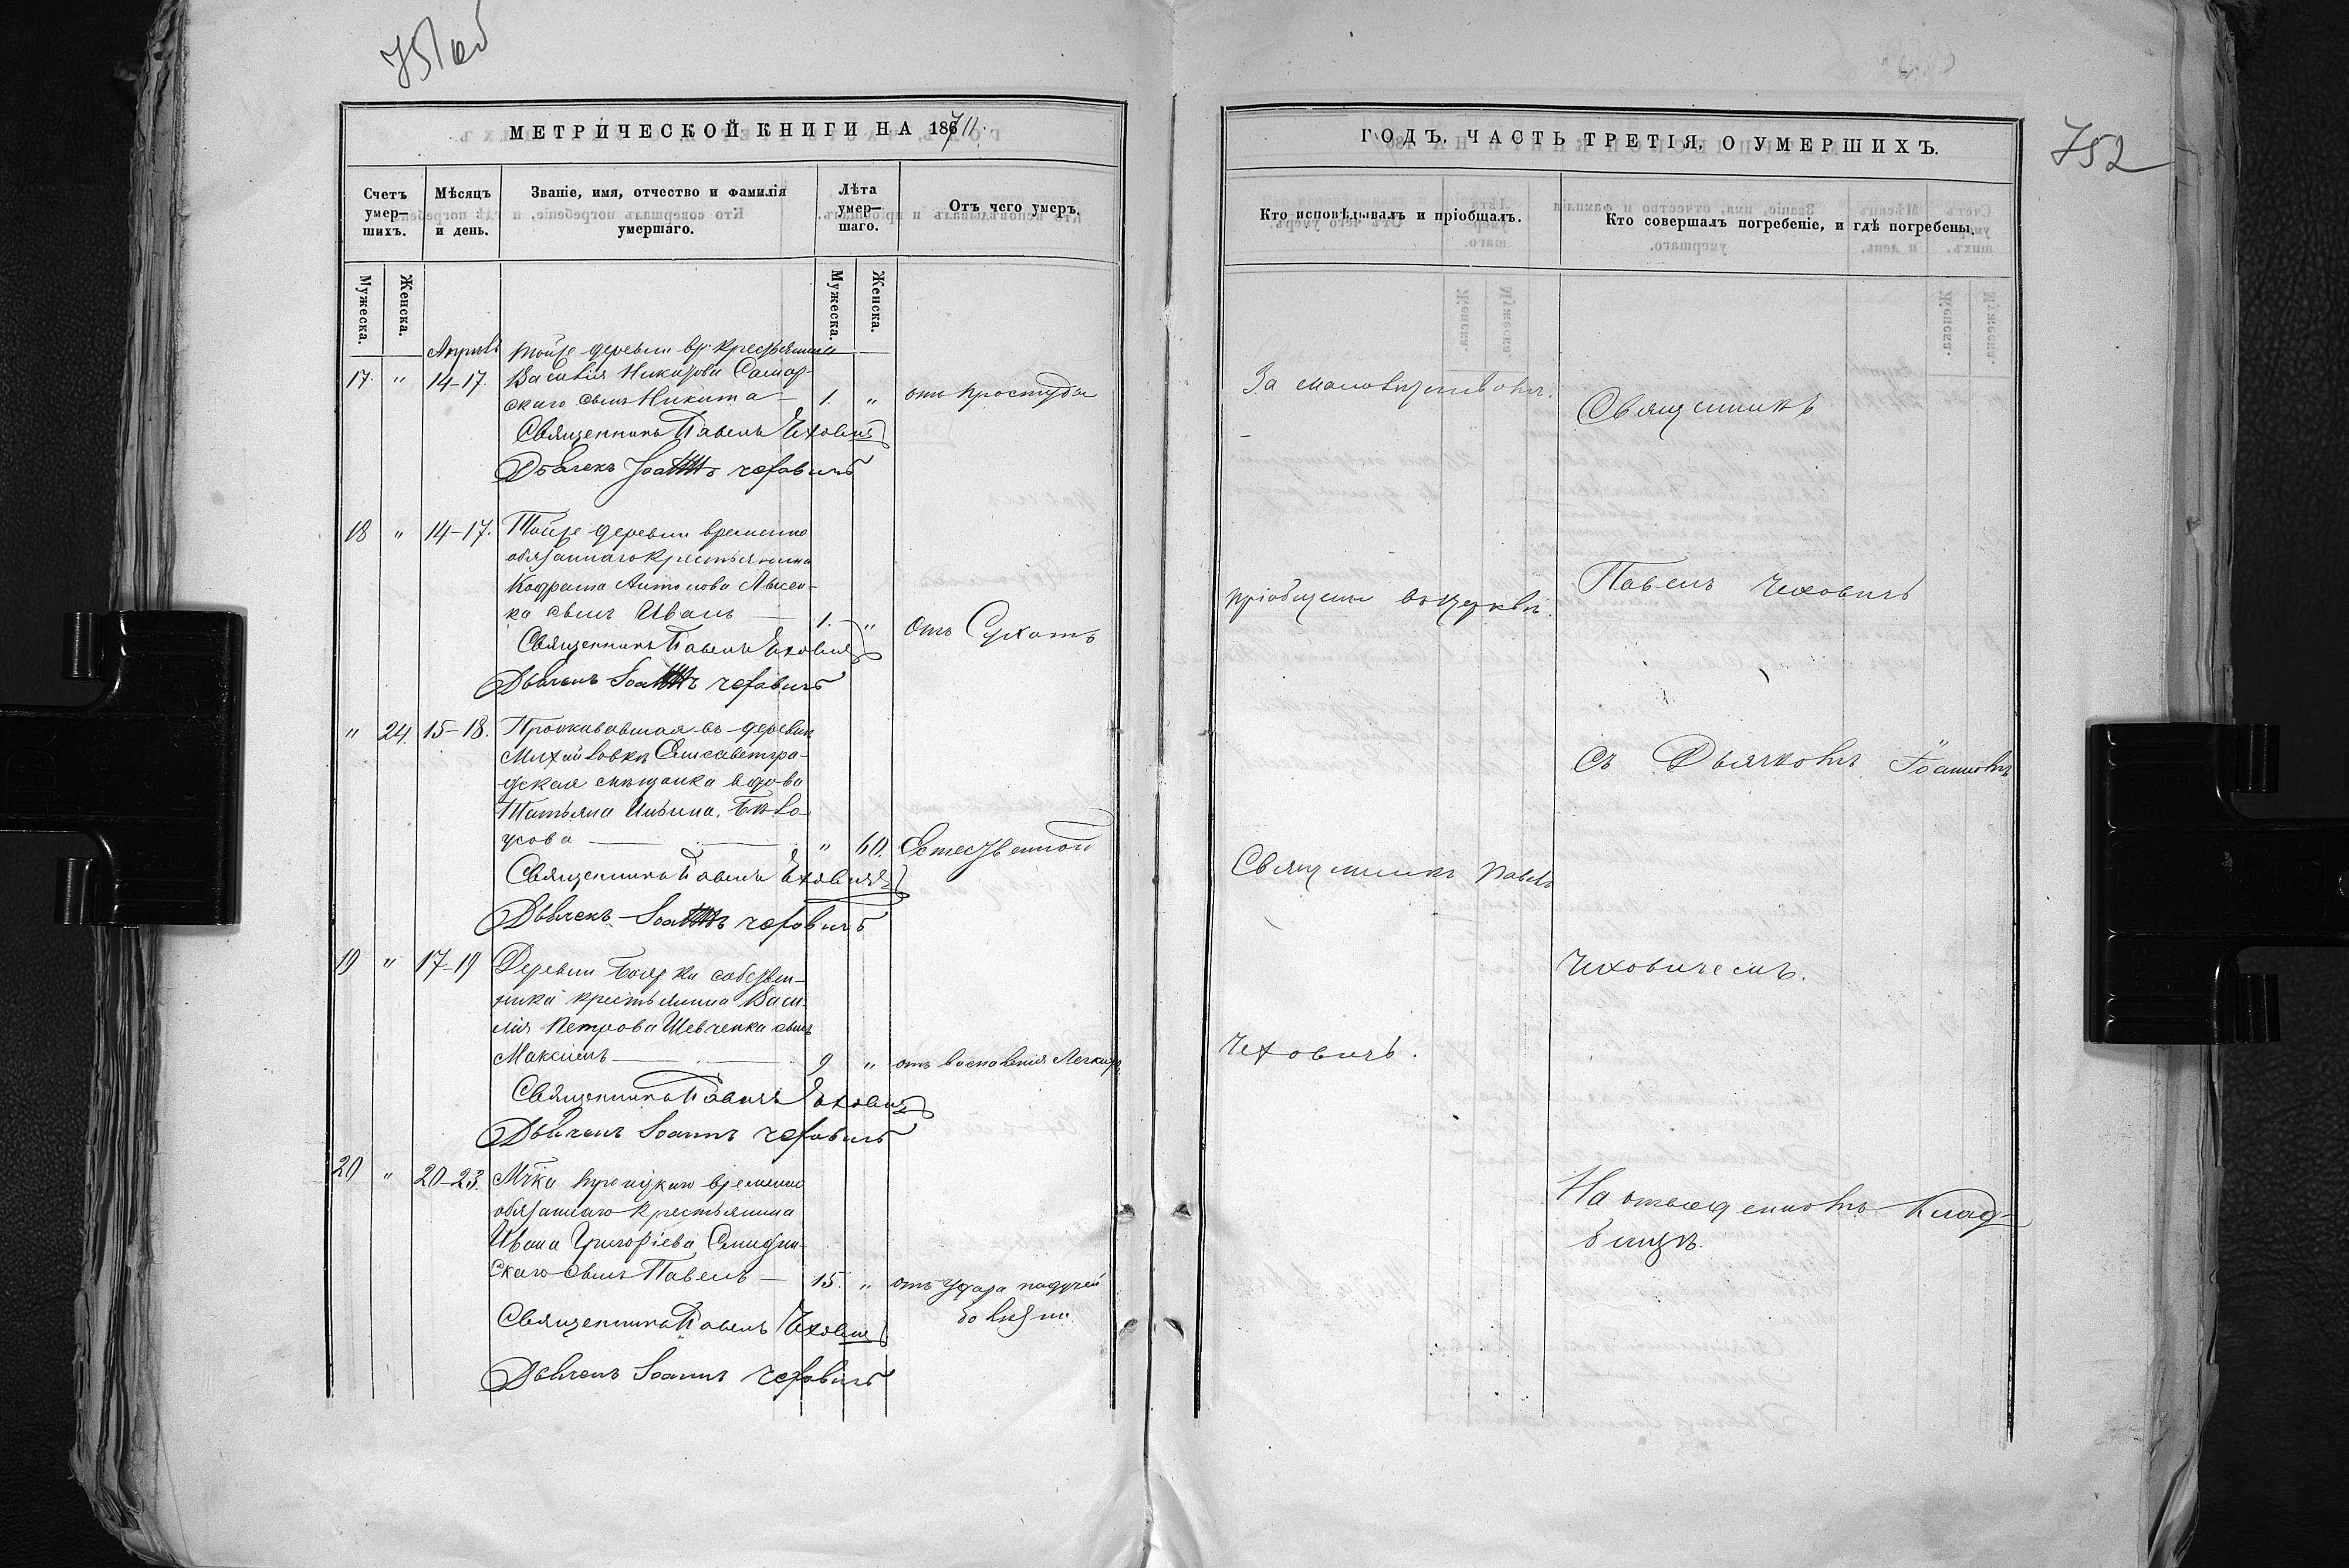 751 об
МЕТРИЧЕСКОЙ КНИГИ НА 1871
Счетъ умер–шихъ.
Мѣсяцъ и день.
Званіе, имя, отчество и фамилія умершаго.
Лѣта умер–шаго.
Отъ чего умеръ.
Мужеска.
Женска.
Мужеска.
Женска.
Апрѣль
17. " 14–17.
тойже деревни вр: крестьянина
Василія Никитова
скаго сынъ Никита — 1. " отъ простуды
Священникъ Павелъ Чеховичъ
Дьячекъ Іоаннъ Чеховичъ
18 " 14–17. Тойже деревни временно
обязаннаго крестьянина
Кодрата Антонова Лысен–
ка сынъ Иванъ — 1. " Отъ Сухотъ
Священникъ Павелъ Чеховичъ
Дьячекъ Іоаннъ Чеховичъ
" 24. 15–18. Проживавшая въ деревни
Михайловкѣ Елисаветгра–
дская мѣщанка вдова
Татьяна Ильина Бѣло–
усова — " 60. Естественной
Священникъ Павелъ Чеховичъ
Дьячекъ Іоаннъ Чеховичъ
19 " 17–19 Деревни собствен–
ника крестьянина Васи–
лія Петрова Шевченка сынъ
Максимъ — 9 " отъ воспаленія Легкихъ
Священникъ Павелъ Чеховичъ
Дьячекъ Іоаннъ Чеховичъ
20 " 20–23. М–чка временно
обязаннаго крестьянина
Ивана Григоріева
скаго сынъ Павелъ — 15. " отъ удара падучей
болѣзни
Священникъ Павелъ Чеховичъ
Дьячекъ Іоаннъ Чеховичъ
752
ГОДЪ, ЧАСТЬ ТРЕТІЯ, О УМЕРШИХЪ.
Кто исповѣдывалъ и пріобщалъ.
Кто совершалъ погребеніе, и гдѣ погребены.
За
пріобщены въ церквѣ.
Священникъ Павелъ
Чеховичъ.
Священникъ
Павелъ Чеховичъ
съ Дьячкомъ Іоанномъ
Чеховичемъ.
На отведенномъ клад–
бищѣ.